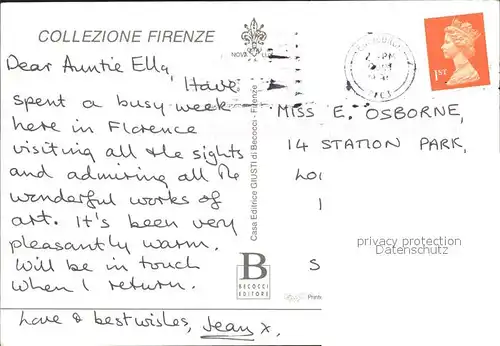 COLLEZIONE FIRENZE
NOVA LUX
1ST
Dear Auntie Ella, I have
spent a busy week
here in Florence
visiting all the sights
and admiring all the
wonderful works of
art. It's been very
pleasantly warm.
Will be in touch
when I return.
Love & best wishes, Jean x.
Casa Editrice GIUSTI di Becocci - Firenze
B
BECOCCI
EDITORE
MISS E. OSBORNE,
14 STATION PARK,
LO
S
privacy protection
Datenschutz